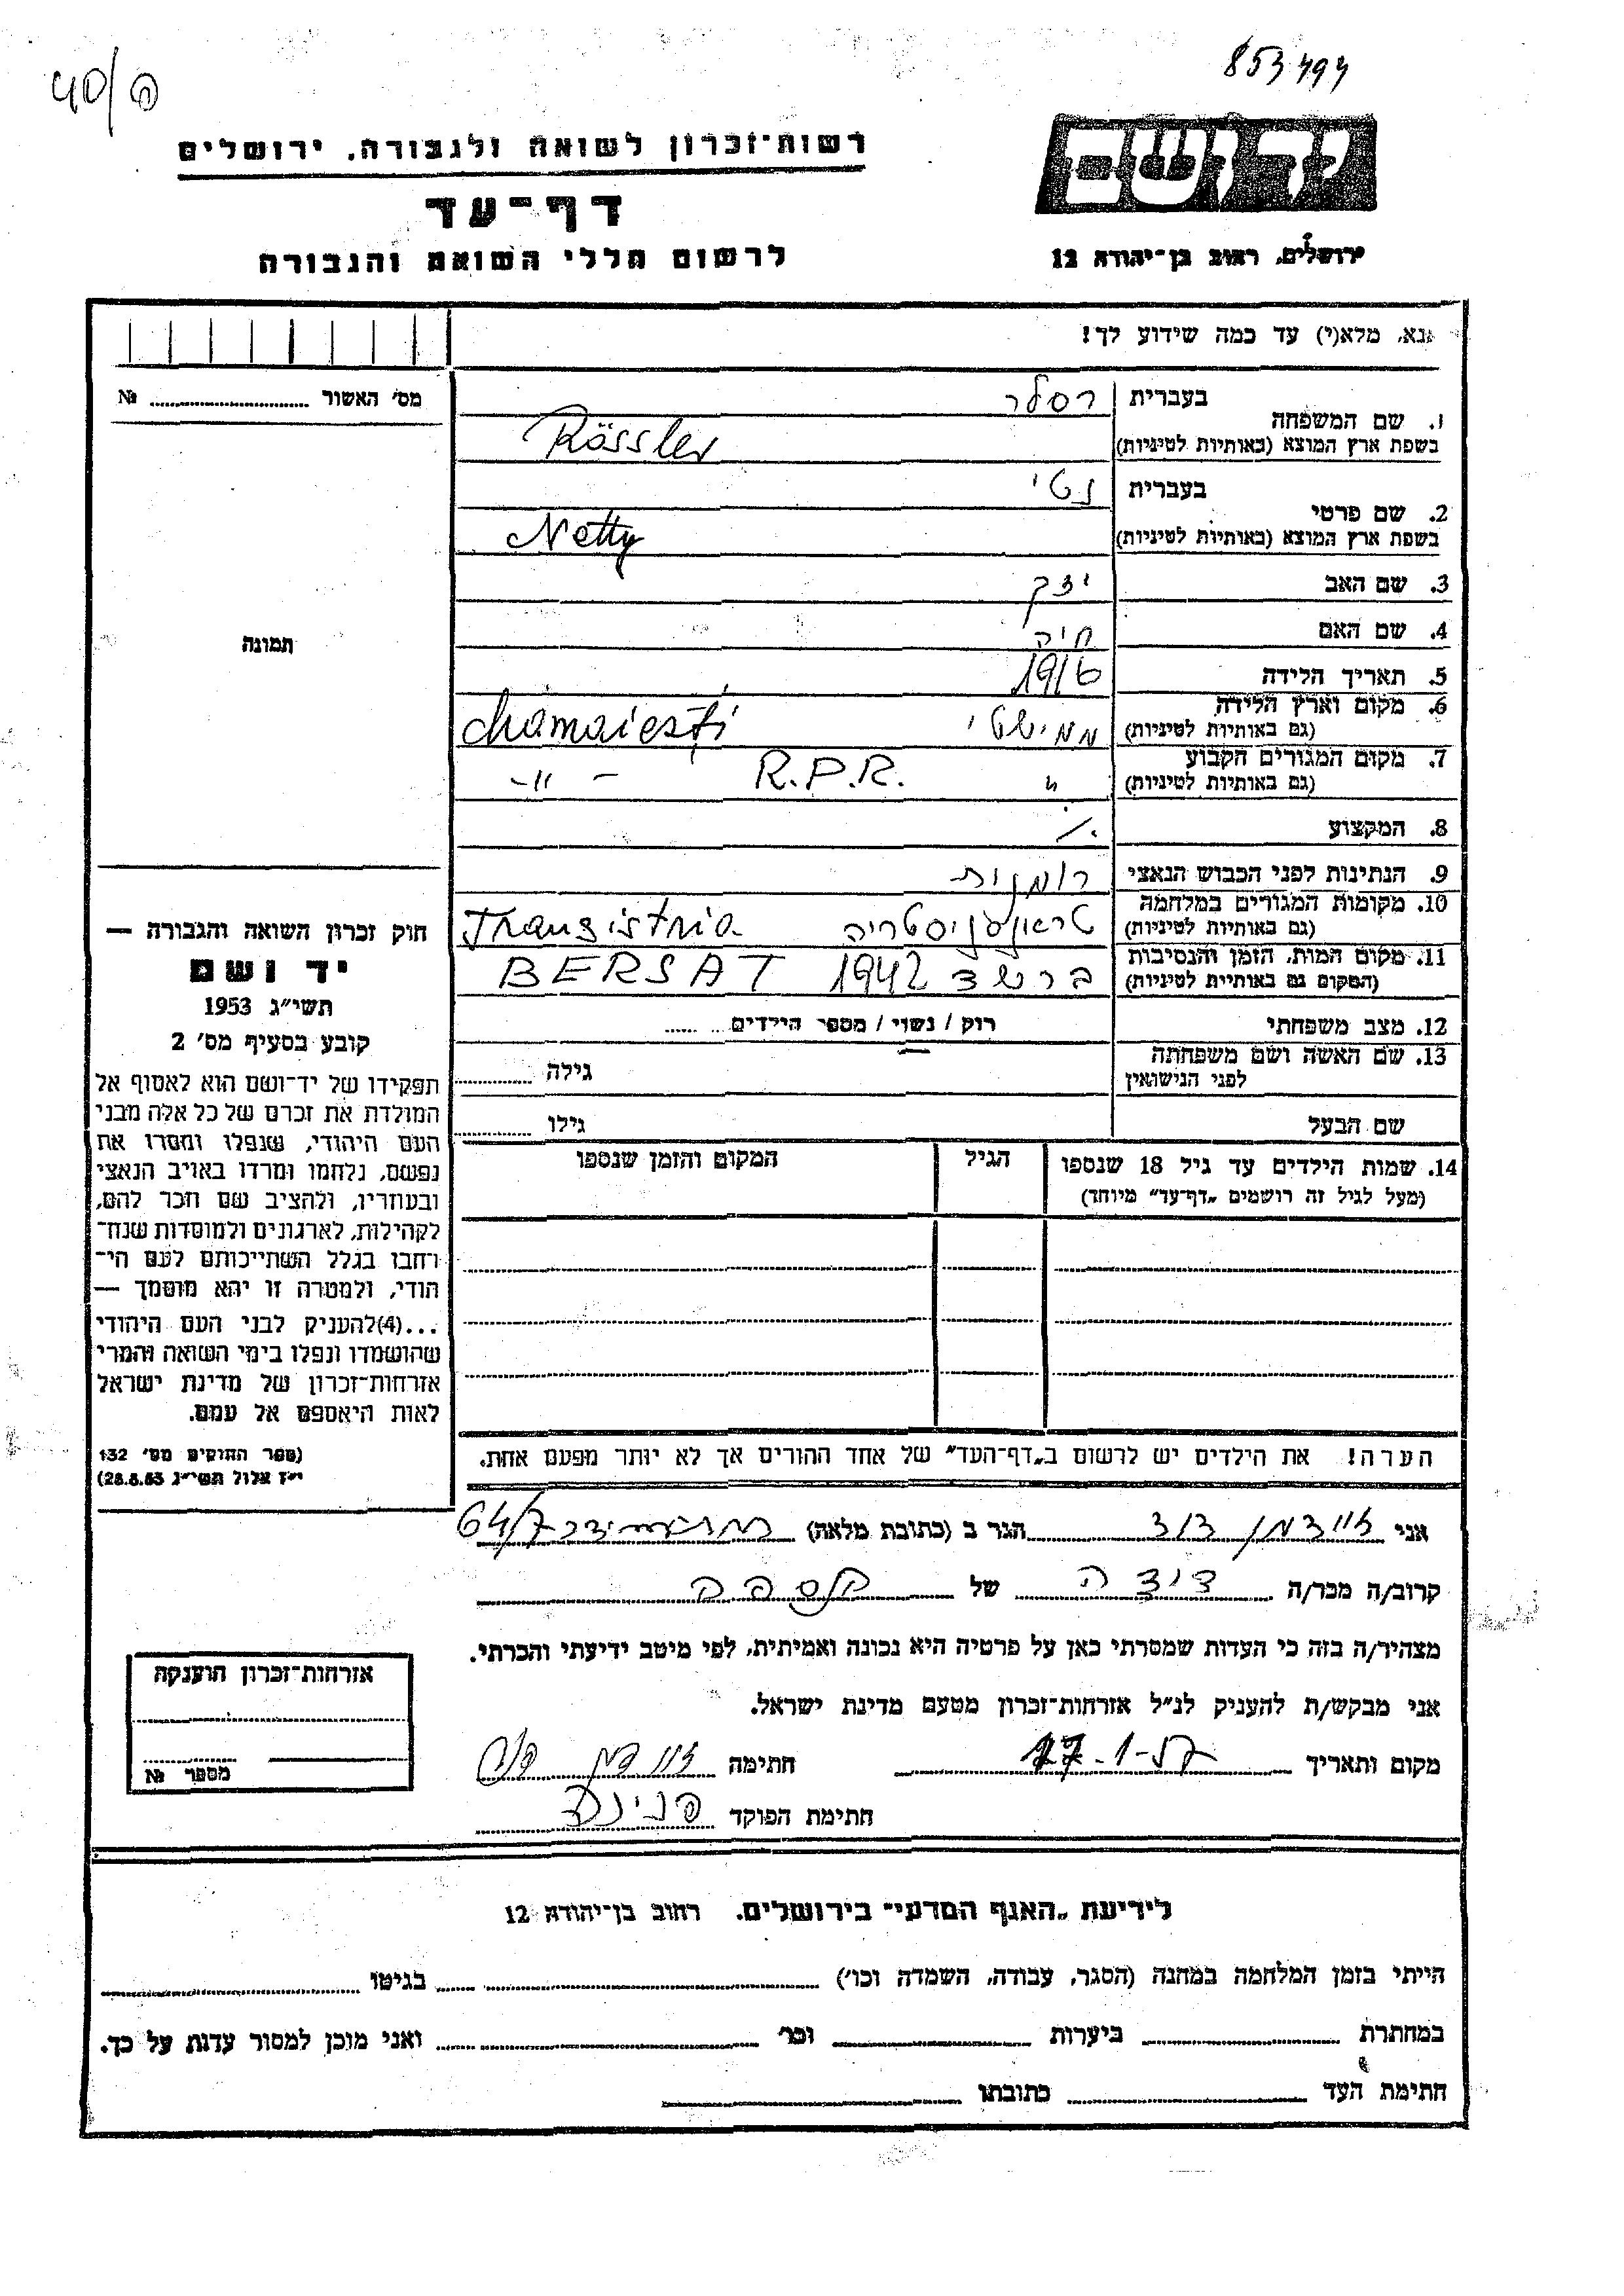 40/ פ
853494
רשות־זכרון לשואה ולגבורה, ירושלים
יד ושם
דף־עד
לרשום חללי השואה והגבורה
ירושלים, רחוב בן־יהודה 12
נא, מלא(י) עד כמה שידוע לך!
מס' האשור № ....................
1. שם המשפחה
בעברית רסלר
בשפת ארץ המוצא (באותיות לטיניות) Rössler
2. שם פרטי
בעברית נטי
בשפת ארץ המוצא (באותיות לטיניות) Netty
3. שם האב יצק
4. שם האם חיה
5. תאריך הלידה 1916
6. מקום וארץ הלידה
(גם באותיות לטיניות) ממישטי chamaiești
7. מקום המגורים הקבוע
(גם באותיות לטיניות) " R.P.R. – -"-
8. המקצוע ./.
9. הנתינות לפני הכבוש הנאצי רומנית
10. מקומות המגורים במלחמה
(גם באותיות לטיניות) טראנסניסטריה Tranzistria
11. מקום המות, הזמן והנסיבות
(המקום גם באותיות לטיניות) ברשד 1942 BERSAT
12. מצב משפחתי רוק / נשוי / מספר הילדים ........
13. שם האשה ושם משפחתה
לפני הנישואין גילה ............
שם הבעל גילו ............
14. שמות הילדים עד גיל 18 שנספו הגיל המקום והזמן שנספו
(מעל לגיל זה רושמים „דף־עד" מיוחד)
תמונה
חוק זכרון השואה והגבורה —
יד ושם
תשי"ג 1953
קובע בסעיף מס' 2
תפקידו של יד־ושם הוא לאסוף אל
המולדת את זכרם של כל אלה מבני
העם היהודי, שנפלו ומסרו את
נפשם, נלחמו ומרדו באויב הנאצי
ובעוזריו, ולהציב שם וזכר להם,
לקהילות, לארגונים ולמוסדות שנח־
רחבו בגלל השתייכותם לעם הי־
הודי, ולמטרה זו יהא מוסמך —
...(4)להעניק לבני העם היהודי
שהושמדו ונפלו בימי השואה והמרי
אזרחות־זכרון של מדינת ישראל
לאות היאספם אל עמם.
(ספר החוקים מס' 132
י"ז אלול תשי"ג 28.8.53)
הערה! את הילדים יש לרשום ב„דף־העד" של אחד ההורים אך לא יותר מפעם אחת.
אני זיידמן דוד הגר ב (כתובת מלאה) 64/7
קרוב/ה מכר/ה דודה של
מצהיר/ה בזה כי העדות שמסרתי כאן על פרטיה היא נכונה ואמיתית, לפי מיטב ידיעתי והכרתי.
אני מבקש/ת להעניק לנ"ל אזרחות־זכרון מטעם מדינת ישראל.
מקום ותאריך 17-1-57 חתימה זיידמן דוד
חתימת הפוקד פנינה
אזרחות־זכרון הוענקה
מספר №
לידיעת „האגף המדעי" בירושלים. רחוב בן־יהודה 12
הייתי בזמן המלחמה במחנה (הסגר, עבודה, השמדה וכו') ............ בגיטו ............
במחתרת ............ ביערות ............ וכו' ............ ואני מוכן למסור עדות על כך.
חתימת העד ............ כתובתו ............